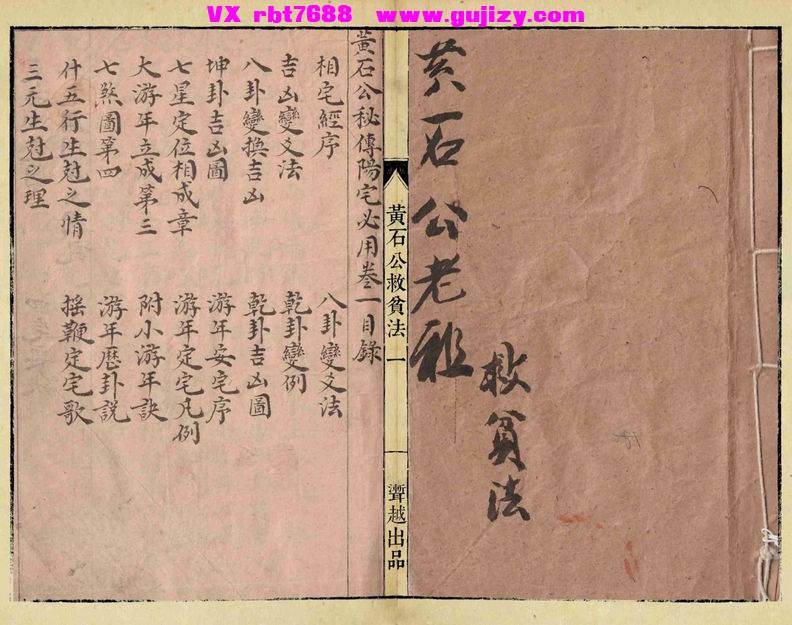 VX rbt7688 www.gujizy.com
黃石公老祖
救貧法
黃石公救貧法 一
聾越出品
黃石公秘傳陽宅必用卷一目錄
相宅經序 八卦變爻法
吉凶變爻法 乾卦變例
八卦變換吉凶 乾卦吉凶圖
坤卦吉凶圖 游年安宅序
七星定位相成章 游年定宅凡例
大游年立成第三 附小游年訣
七煞圖第四 游年歷卦說
什五行生尅之情 搖鞭定宅歌
三元生尅之理